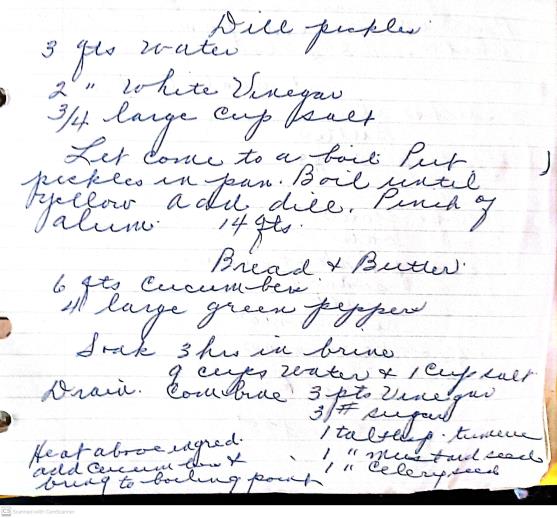 Dill pickles
3 qts water
2 " White Vinegar
3/4 large cup salt
Let come to a boil Put
pickles in pan. Boil until
yellow add dill. Pinch of
alum. 14 qts.
Bread & Butter
6 qts cucumber
4 large green pepper
Soak 3 hrs in brine
9 cups water & 1 cup salt
Drain. Combine 3 pts Vinegar
3 # sugar
1 talsp. tumeric
1 " mustard seed
1 " Celery seed
Heat above ingred.
add cucumber &
bring to boiling point
CS Scanned with CamScanner